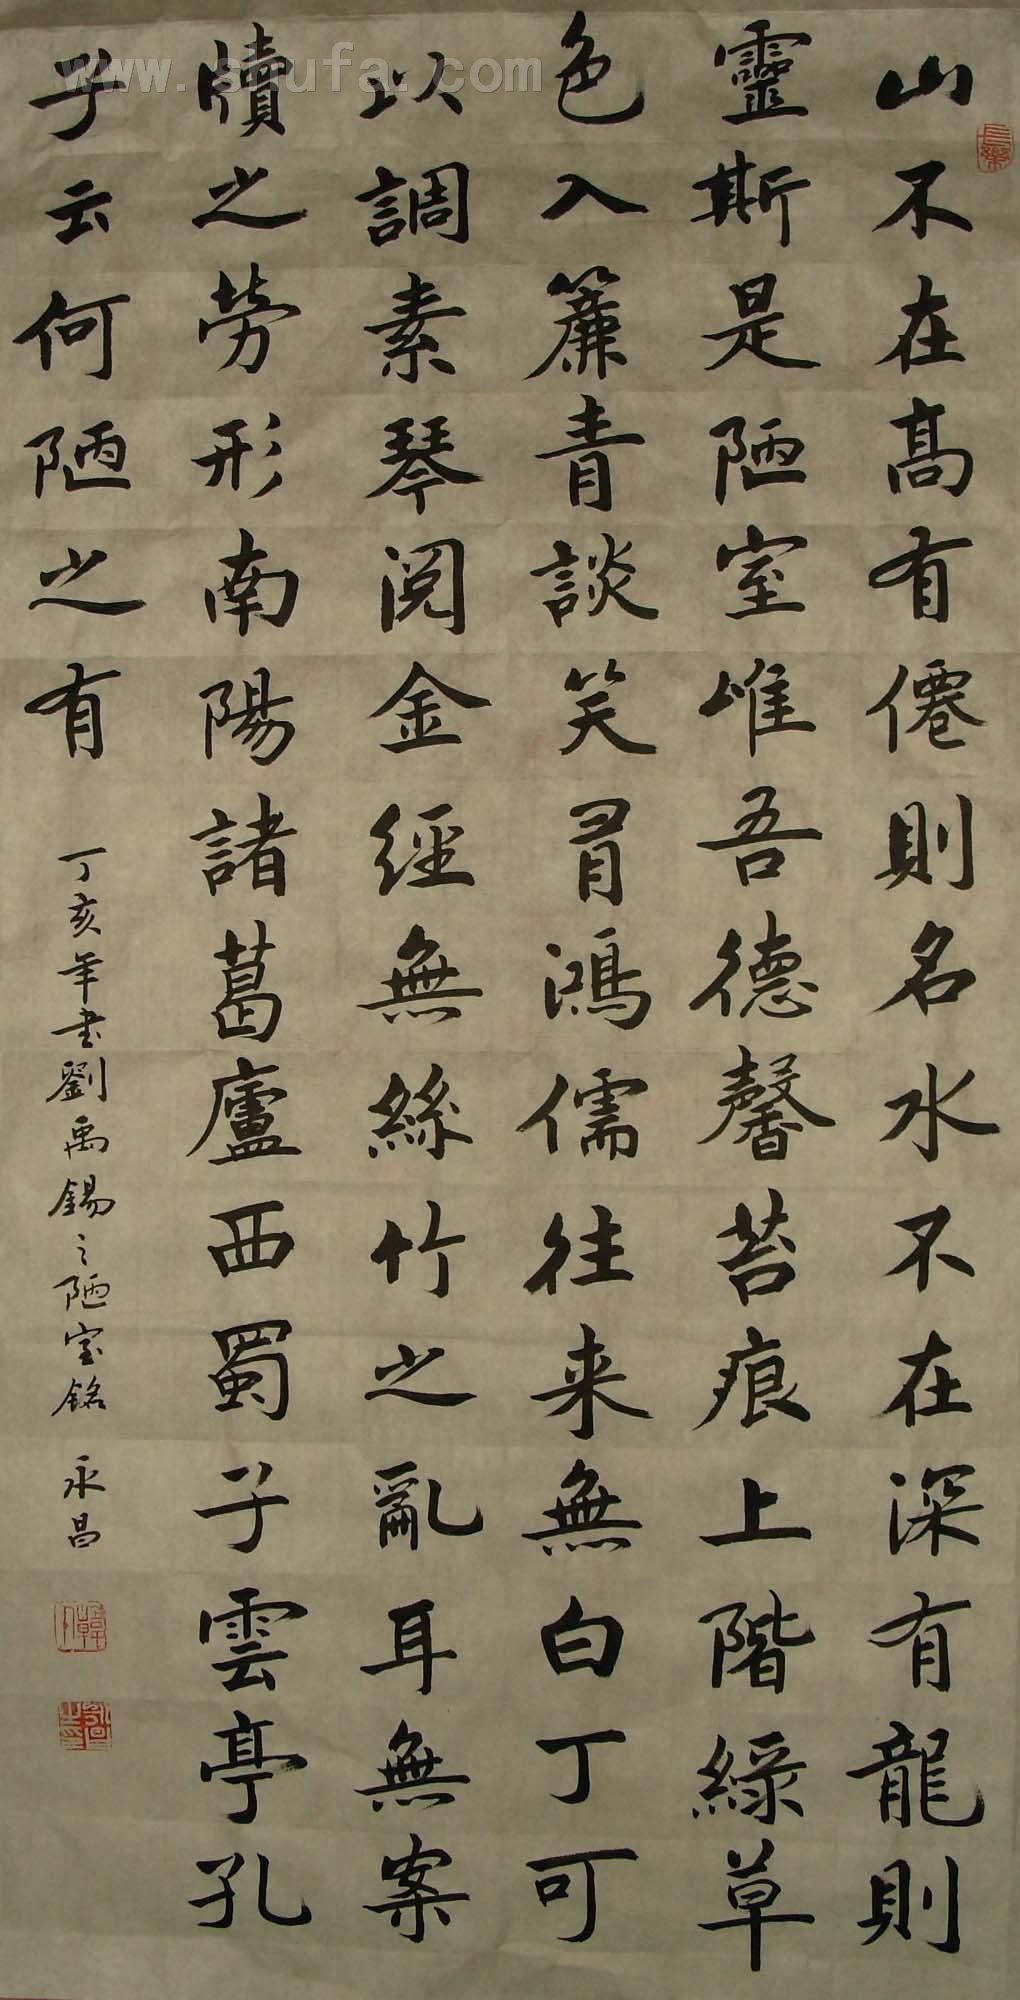 www.shufa.com
長樂
山不在髙有僊則名水不在深有龍則
靈斯是陋室唯吾德馨苔痕上階綠草
色入簾青談笑有鴻儒往来無白丁可
以調素琴閱金經無絲竹之亂耳無案
牘之勞形南陽諸葛廬西蜀子雲亭孔
子云何陋之有
丁亥年書劉禹錫之陋室銘 永昌